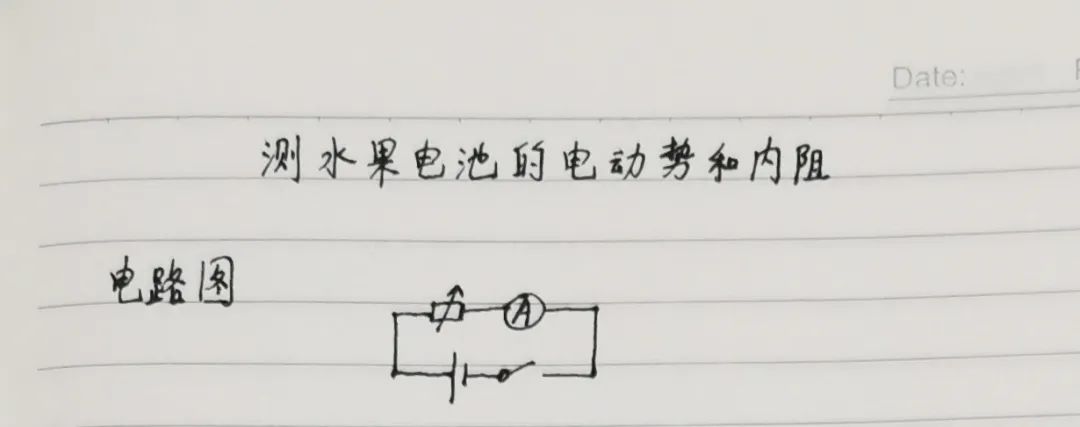 Date:
测水果电池的电动势和内阻
电路图
A